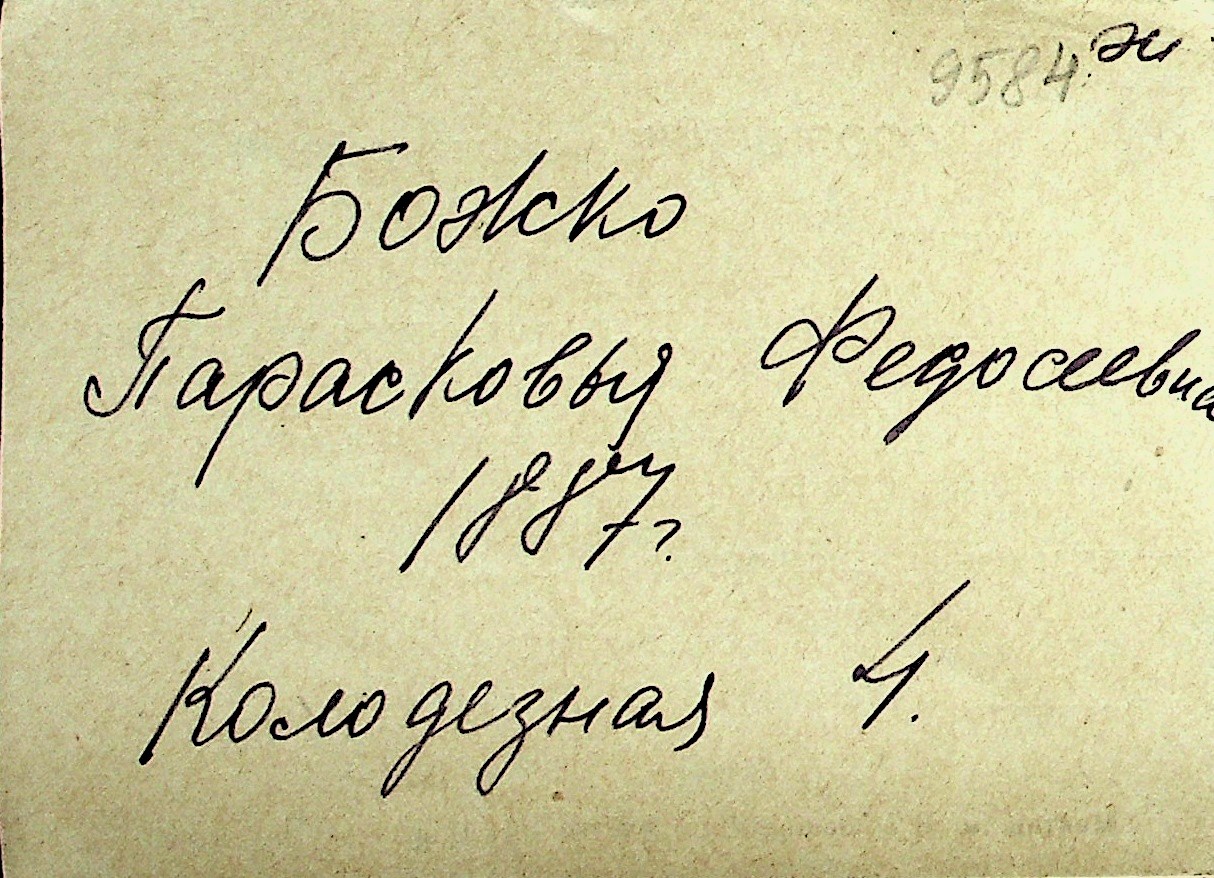 9584 ж
Божко
Парасковья Федосеевна
1887г.
Колодезная 4.